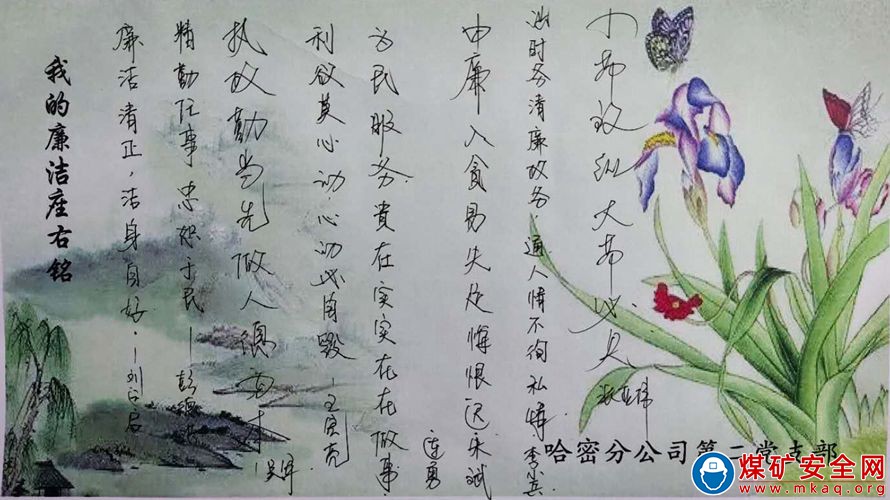 我的廉洁座右铭
廉洁清正,洁身自好.—刘
精勤任事 忠恕于民 —彭
执政勤当先 做人德为本
—吴军
利欲莫心动.心动必自毁.—王宾亮
为民服务.贵在实实在在做事
连勇
由廉入贪易 失足悔恨迟
时务清廉政务.通人情不徇私情 李
小节 纵 大节必
张亚
哈密分公司第二党支部
煤矿安全网
www.mkaq.org